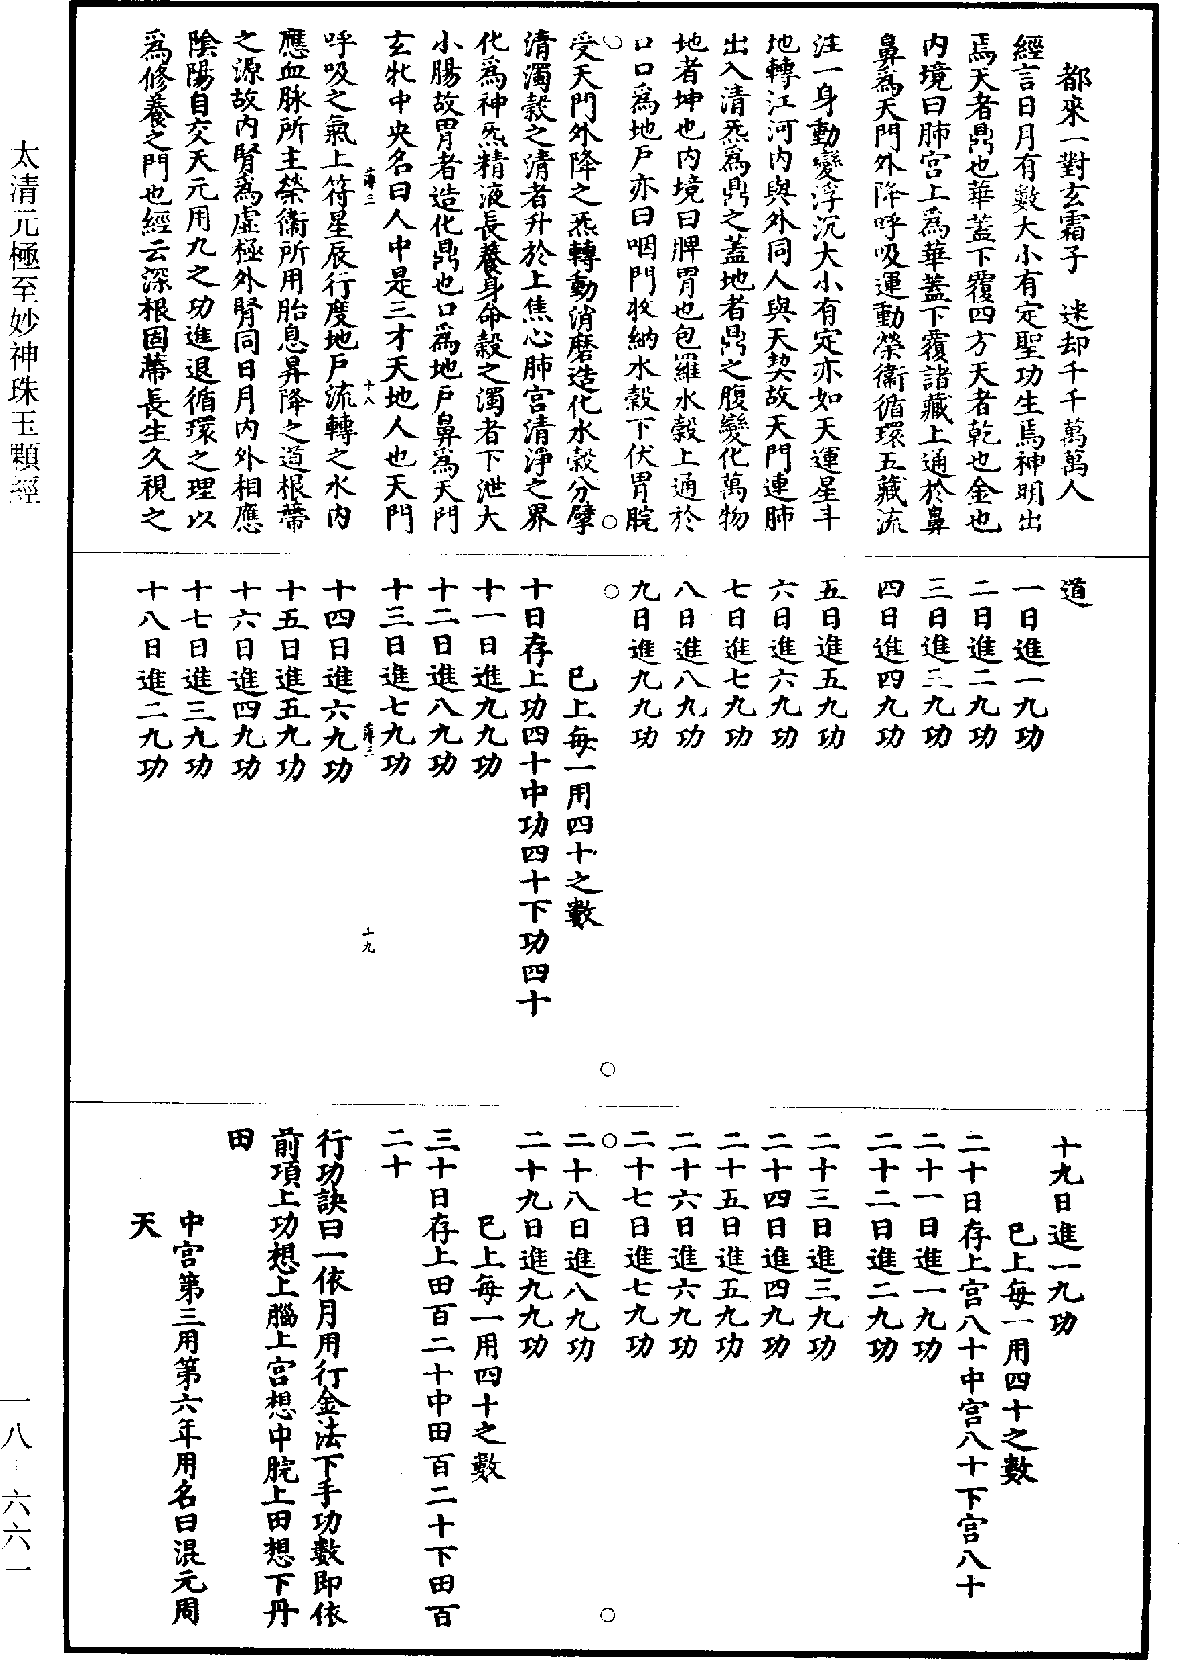 都來一對玄霜子　迷却千千萬萬人
經言日月有數大小有定聖功生焉神明出
焉天者鼎也華蓋下覆四方天者乾也金也
內境曰肺宮上爲華蓋下覆諸藏上通於鼻
鼻爲天門外降呼吸運動榮衞循環五藏流
注一身動變浮沉大小有定亦如天運星斗
地轉江河內與外同人與天契故天門連肺
出入清炁爲鼎之蓋地者鼎之腹變化萬物
地者坤也內境曰脾胃也包羅水穀上通於
口口爲地戶亦曰咽門收納水穀下伏胃脘
受天門外降之炁轉動消磨造化水穀分擘
清濁穀之清者升於上焦心肺宮清淨之界
化爲神炁精液長養身命穀之濁者下泄大
小腸故胃者造化鼎也口爲地戶鼻爲天門
玄牝中央名曰人中是三才天地人也天門
薄三　十八
呼吸之氣上符星辰行度地戶流轉之水內
應血脉所主榮衞所用胎息昇降之道根蔕
之源故內腎爲虛極外腎同日月內外相應
陰陽自交天元用九之功進退循環之理以
爲修養之門也經云深根固蔕長生久視之
道
一日進一九功
二日進二九功
三日進三九功
四日進四九功
五日進五九功
六日進六九功
七日進七九功
八日進八九功
九日進九九功
已上每一用四十之數
十日存上功四十中功四十下功四十
十一日進九九功
十二日進八九功
十三日進七九功
薄三　十九
十四日進六九功
十五日進五九功
十六日進四九功
十七日進三九功
十八日進二九功
十九日進一九功
已上每一用四十之數
二十日存上宮八十中宮八十下宮八十
二十一日進一九功
二十二日進二九功
二十三日進三九功
二十四日進四九功
二十五日進五九功
二十六日進六九功
二十七日進七九功
二十八日進八九功
二十九日進九九功
已上每一用四十之數
三十日存上田百二十中田百二十下田百
二十
行功訣曰一依月用行金法下手功數即依
前項上功想上腦上宮想中脘上田想下丹
田
中宮第三用第六年用名曰混元周
天
太清元極至妙神珠玉顆經
一八—六六一